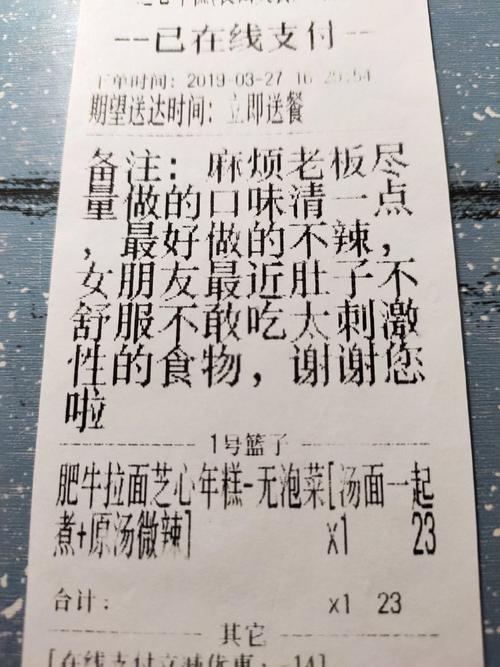 --已在线支付--
下单时间: 2019-03-27 16:29:54
期望送达时间: 立即送餐
备注: 麻烦老板尽
量做的口味清一点
,最好做的不辣,
女朋友最近肚子不
舒服不敢吃太刺激
性的食物,谢谢您
啦
1号篮子
肥牛拉面芝心年糕-无泡菜[汤面一起
煮+原汤微辣] x1 23
合计: x1 23
其它
[在线支付立减优惠: -14]